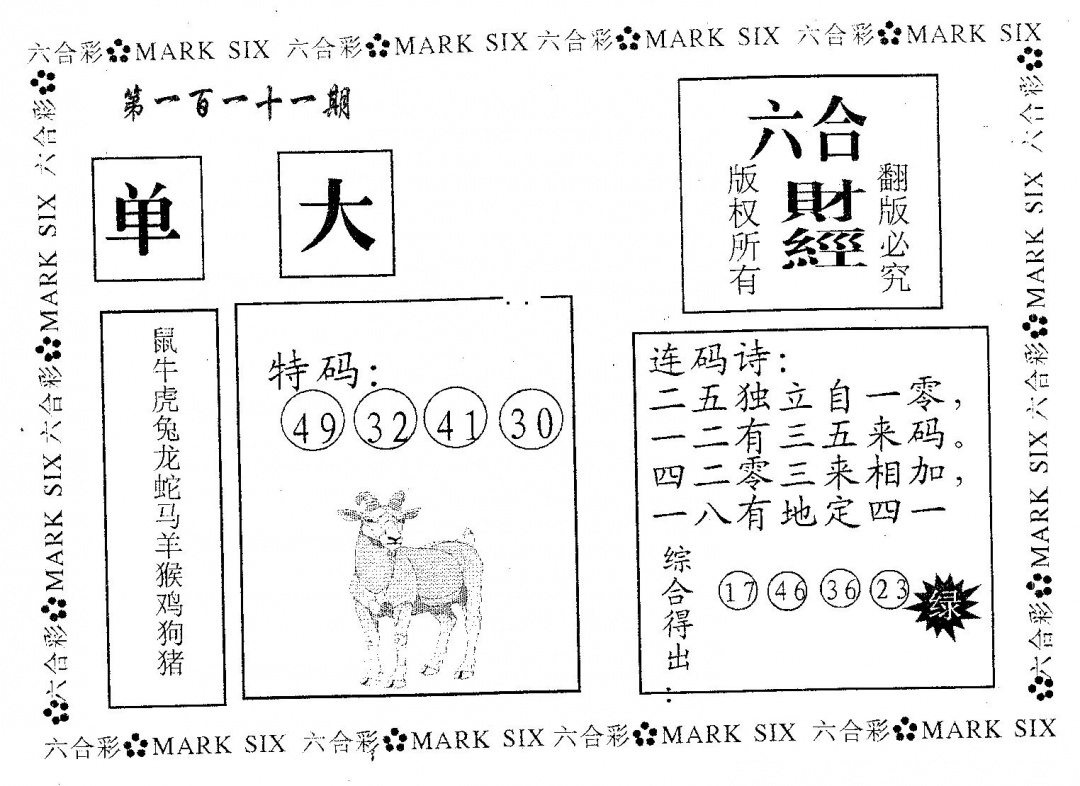 六合彩 MARK SIX 六合彩 MARK SIX 六合彩 MARK SIX 六合彩 MARK SIX
六合彩 MARK SIX 六合彩 MARK SIX 六合彩
六合彩 MARK SIX 六合彩 MARK SIX 六合彩
第一百一十一期
单
大
六合
財經
版权所有
翻版必究
鼠牛虎兔龙蛇马羊猴鸡狗猪
特码:
49 32 41 30
连码诗:
二五独立自一零,
一二有三五来码。
四二零三来相加,
一八有地定四一
综合得出:
17 46 36 23 绿
六合彩 MARK SIX 六合彩 MARK SIX 六合彩 MARK SIX 六合彩 MARK SIX